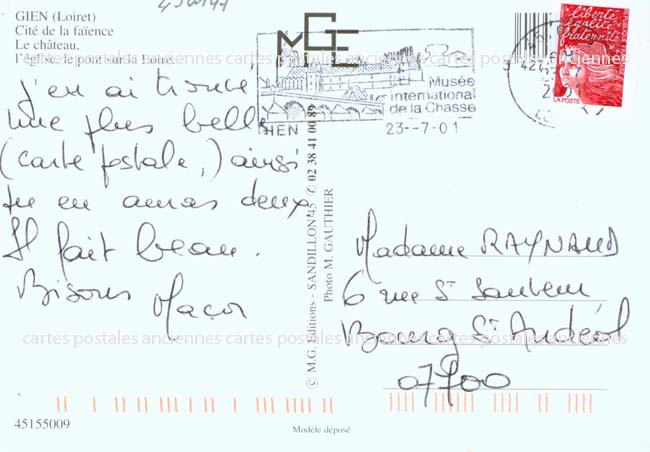 GIEN (Loiret)
Cité de la faïence
Le château,
l'église, le pont sur la Loire.
MGE
Musée
International
de la Chasse
GIEN
23--7-01
liberté
égalité
fraternité
LA POSTE
cartes postales anciennes cartes postales anciennes cartes postales anciennes
j'en ai trouvé
une plus belle
(carte postale,) ainsi
tu en auras deux
Il fait beau.
Bisous
© M.G. Editions - SANDILLON 45 ✆ 02 38 41 00 89
Photo M. GAUTHIER
Madame RAYNAUD
6 rue St
Bourg St Andéol
07700
cartes postales anciennes cartes postales anciennes cartes postales anciennes
45155009
Modèle déposé